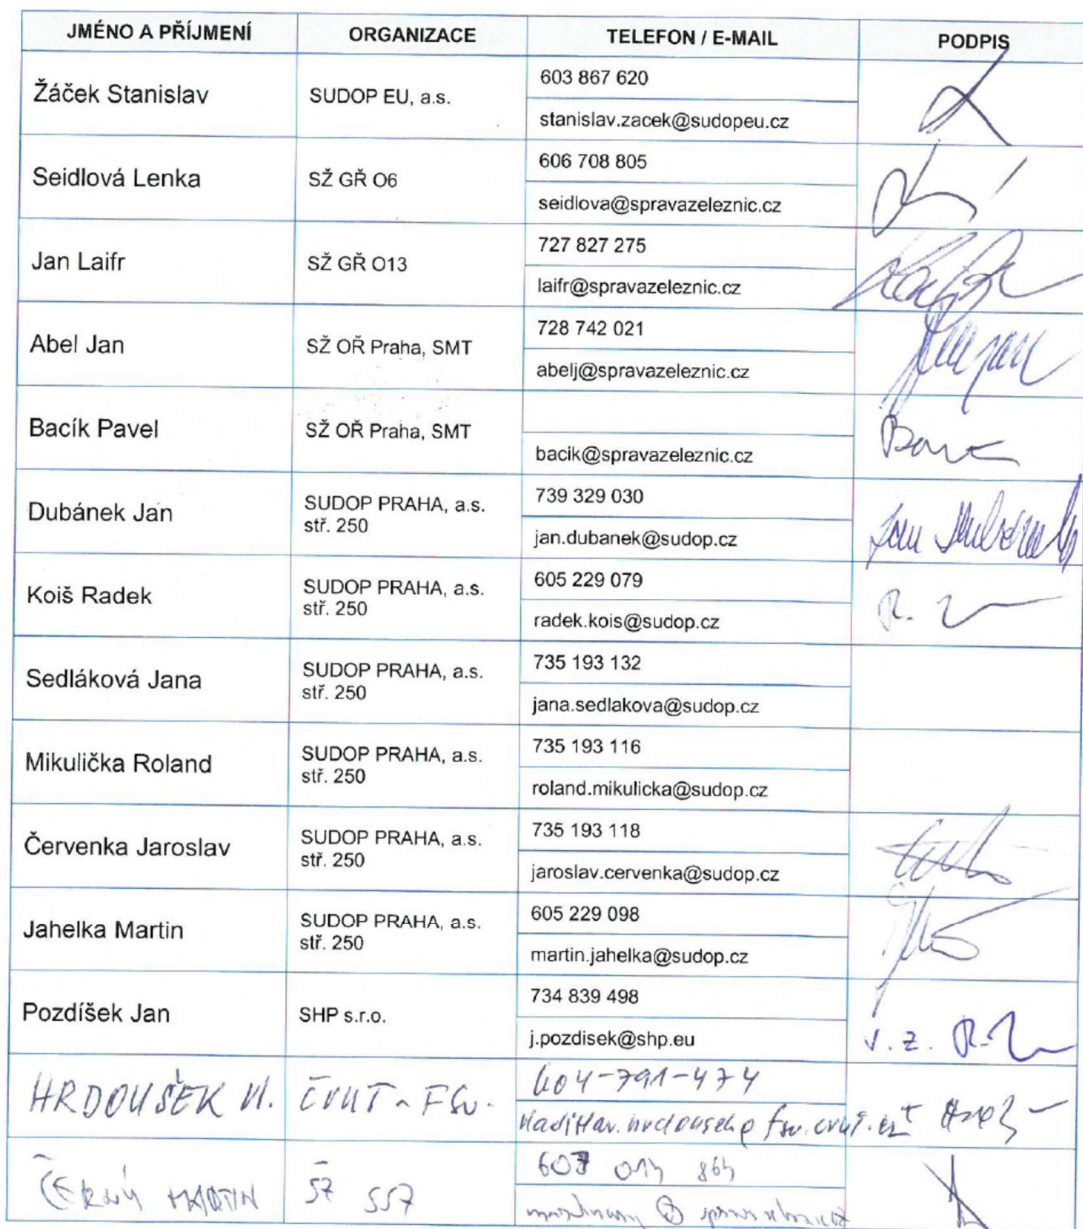 JMÉNO A PŘÍJMENÍ ORGANIZACE TELEFON / E-MAIL PODPIS
Žáček Stanislav SUDOP EU, a.s. 603 867 620
stanislav.zacek@sudopeu.cz
Seidlová Lenka SŽ GŘ O6 606 708 805
seidlova@spravazeleznic.cz
Jan Laifr SŽ GŘ O13 727 827 275
laifr@spravazeleznic.cz
Abel Jan SŽ OŘ Praha, SMT 728 742 021
abelj@spravazeleznic.cz
Bacík Pavel SŽ OŘ Praha, SMT
bacik@spravazeleznic.cz
Dubánek Jan SUDOP PRAHA, a.s. 739 329 030
stř. 250
jan.dubanek@sudop.cz
Koiš Radek SUDOP PRAHA, a.s. 605 229 079
stř. 250
radek.kois@sudop.cz
Sedláková Jana SUDOP PRAHA, a.s. 735 193 132
stř. 250
jana.sedlakova@sudop.cz
Mikulička Roland SUDOP PRAHA, a.s. 735 193 116
stř. 250
roland.mikulicka@sudop.cz
Červenka Jaroslav SUDOP PRAHA, a.s. 735 193 118
stř. 250
jaroslav.cervenka@sudop.cz
Jahelka Martin SUDOP PRAHA, a.s. 605 229 098
stř. 250
martin.jahelka@sudop.cz
Pozdíšek Jan SHP s.r.o. 734 839 498
j.pozdisek@shp.eu v.z.
HRDOUŠEK Vl. ČVUT - FSv. 604-791-474
ČERNÝ MARTIN